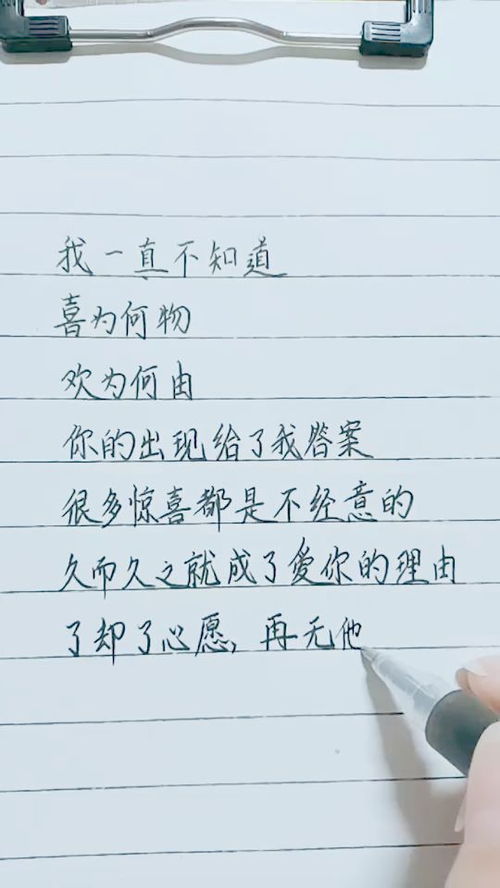 我一真不知道
喜为何物
欢为何由
你的出现给了我答案
很多惊喜都是不经意的
久而久之就成了爱你的理由
了却了心愿,再无他